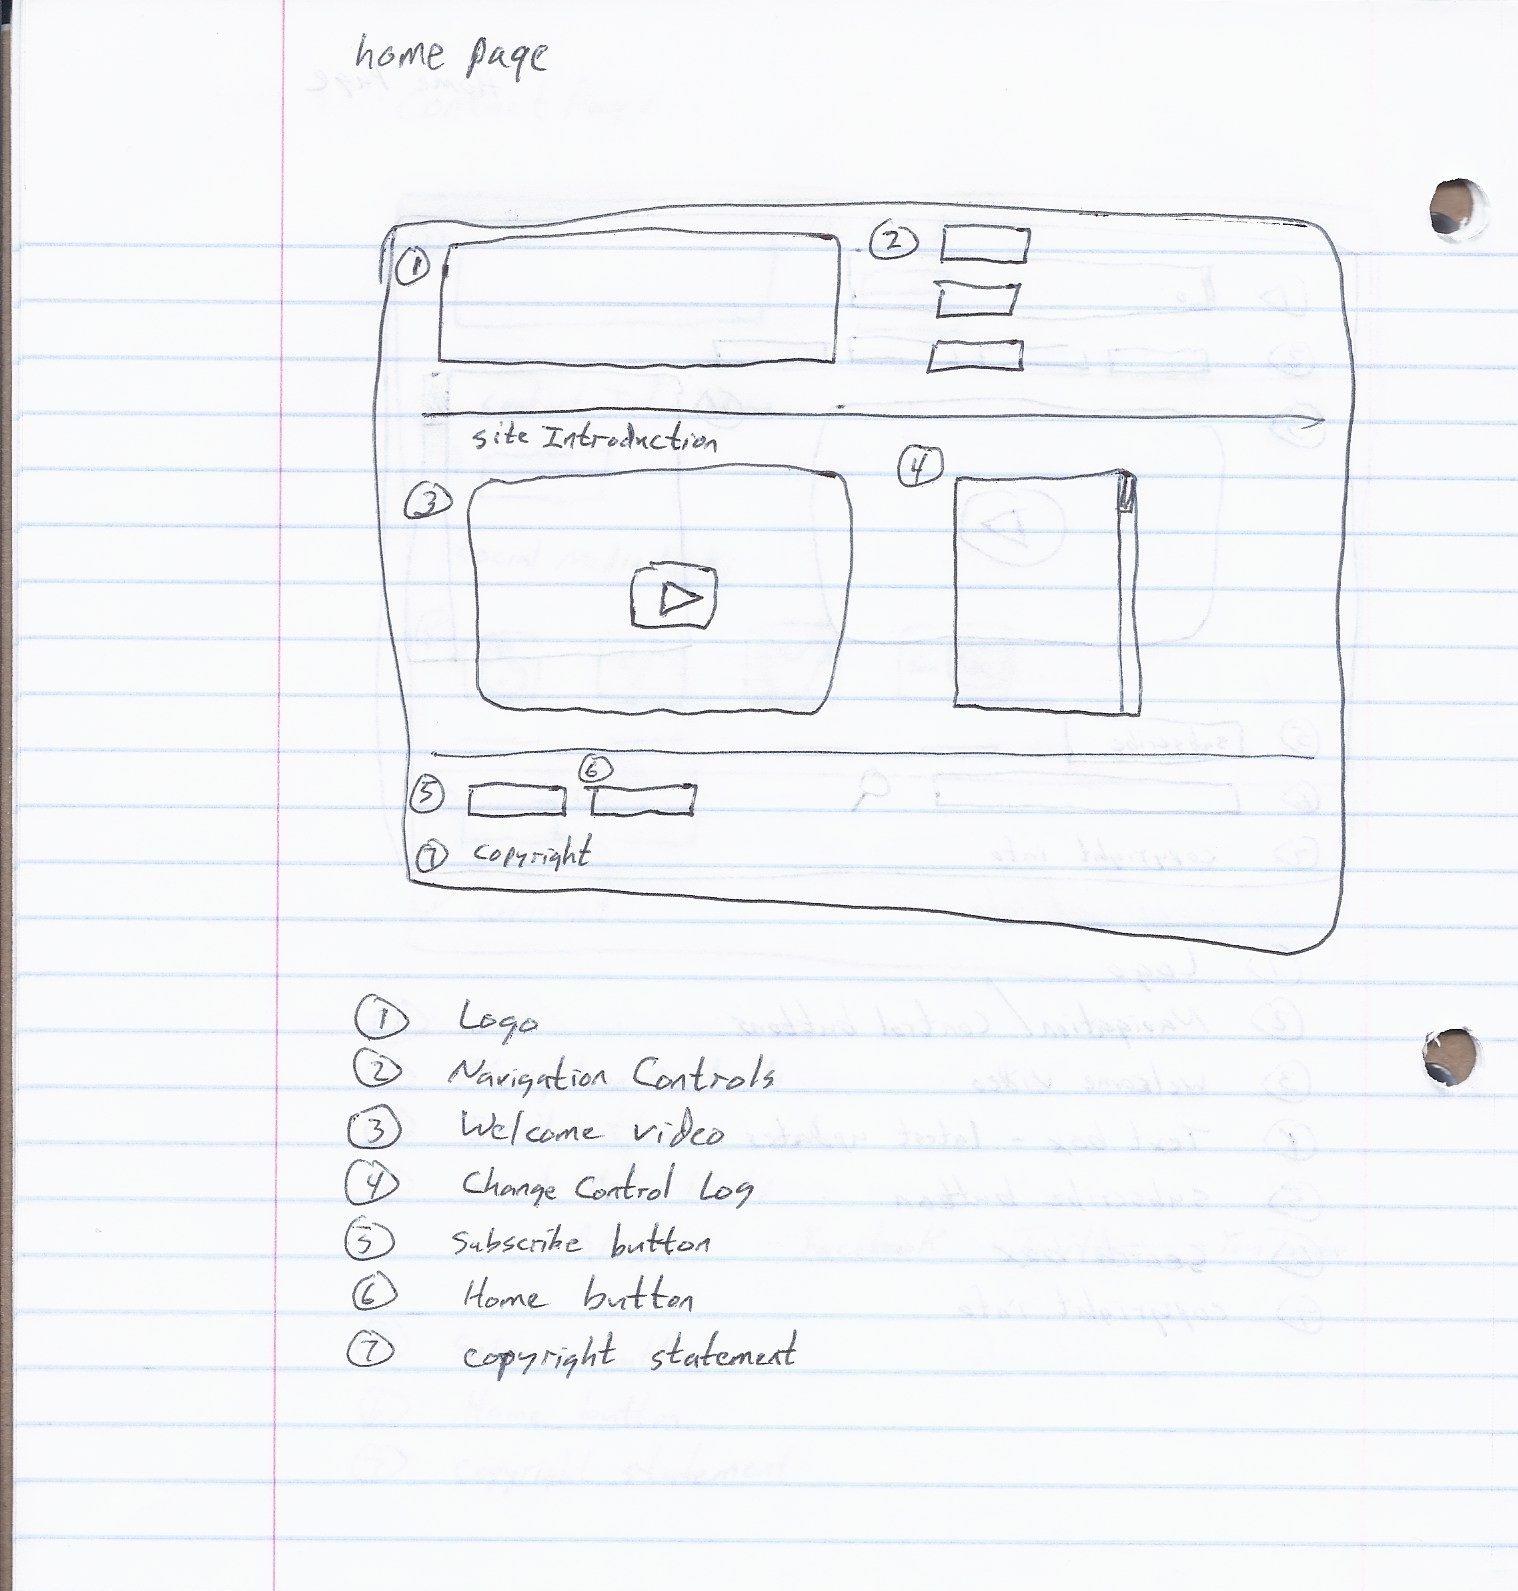 home page
1
2
site Introduction
3
4
5
6
7 copyright
1 Logo
2 Navigation Controls
3 Welcome video
4 Change Control Log
5 Subscribe button
6 Home button
7 copyright statement